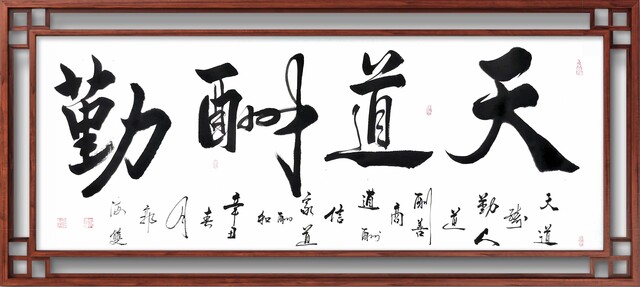 天道酬勤
天道酬勤人道酬善商道酬信家道酬和辛丑春月